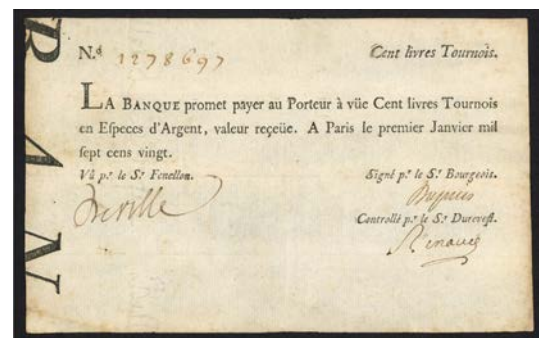 B A N
N.º 1278697 Cent livres Tournois.
LA BANQUE promet payer au Porteur à vüe Cent livres Tournois
en Eſpeces d'Argent, valeur reçeüe. A Paris le premier Janvier mil
ſept cens vingt.
Vû p.r le S.r Fenellon. Signé p.r le S.r Bourgeois.
Controllé p.r le S.r Dureveſt.